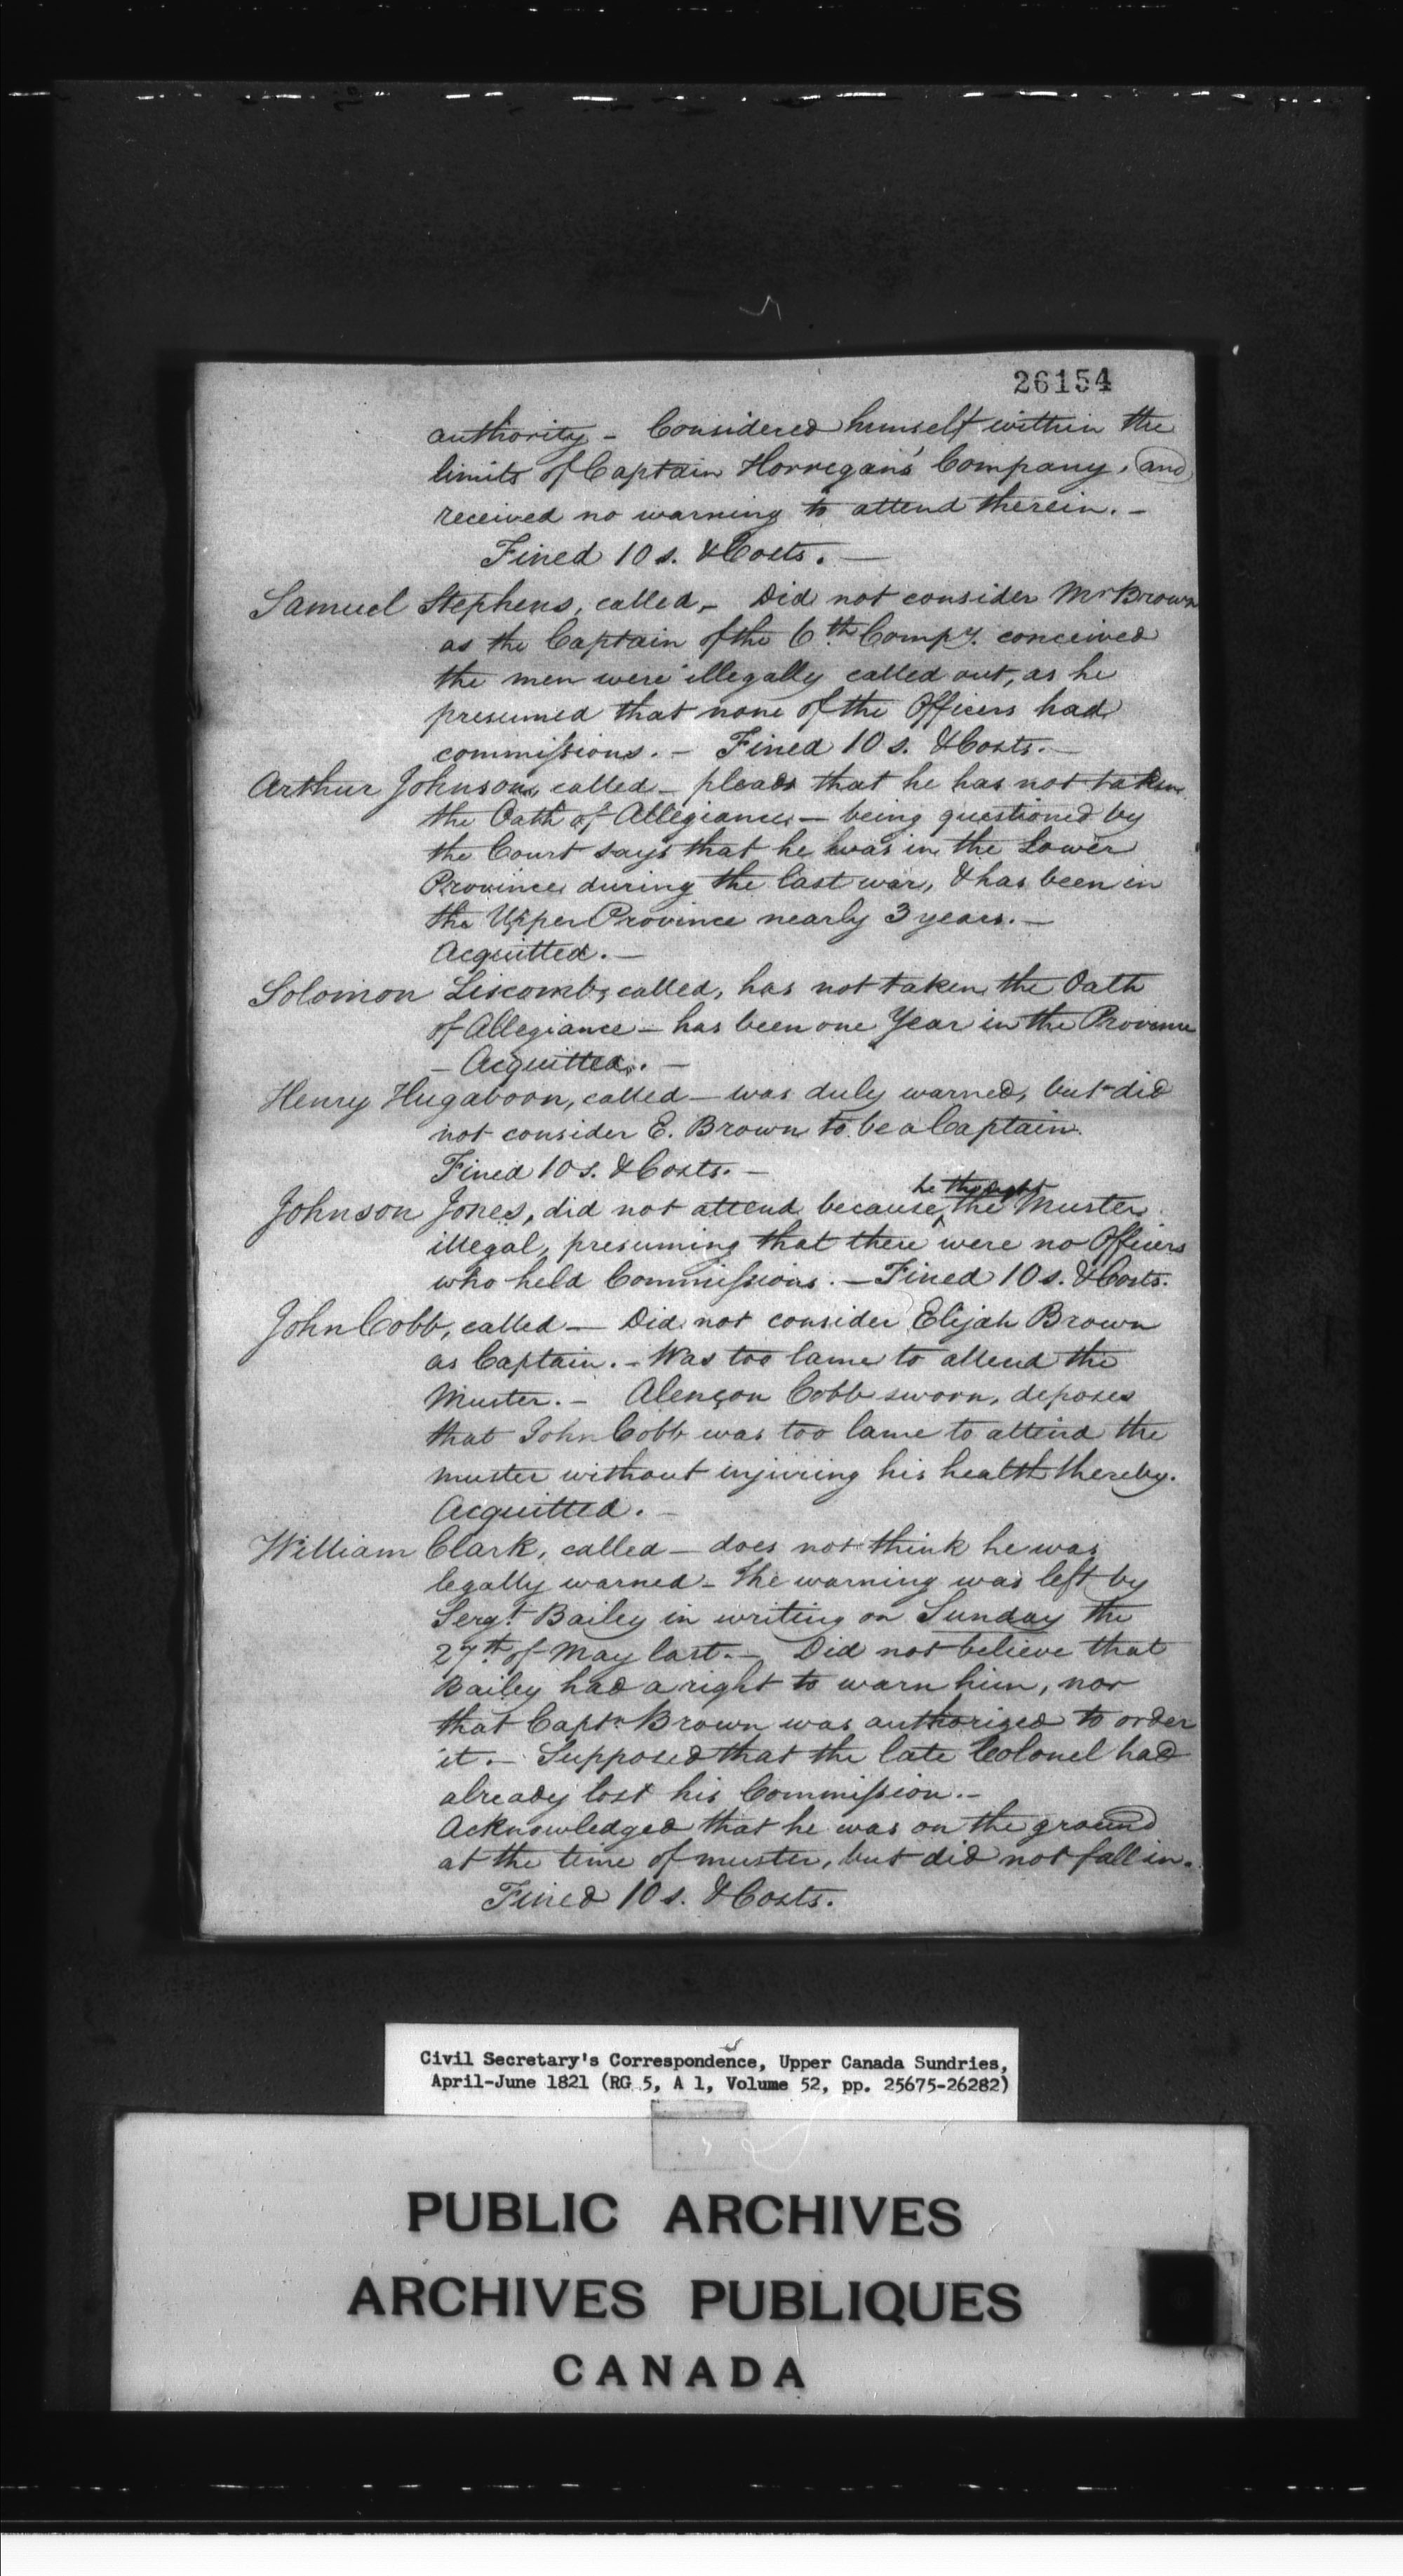 26154
authority - Considered himself within the
limits of Captain Horregan's Company, and
received no warning to attend therein. -
Fined 10 s. & Costs. -
Samuel Stephens, called, - Did not consider Mr Brown
as the Captain of the 6th Compy. conceived
the men were illegally called out, as he
presumed that none of the Officers had
commissions. - Fined 10 s. & Costs. -
Arthur Johnson, called - pleads that he has not taken
the Oath of Allegiance - being questioned by
the Court says that he was in the Lower
Province during the last war, & has been in
the Upper Province nearly 3 years. -
Acquitted. -
Solomon Liscomb, called, has not taken the Oath
of Allegiance - has been one Year in the Province
- Acquitted. -
Henry Hugaboon, called - was duly warned, but did
not consider E. Brown to be a Captain.
Fined 10 s. & Costs. -
he thought
Johnson Jones, did not attend because ^ the Muster
illegal, presuming that there were no Officers
who held Commissions. - Fined 10 s. & Costs.
John Cobb, called - Did not consider Elijah Brown
as Captain. - Was too lame to attend the
Muster. - Alençon Cobb sworn, deposes
that John Cobb was too lame to attend the
muster without injuring his health thereby.
Acquitted. -
William Clark, called - does not think he was
legally warned - The warning was left by
Sergt. Bailey in writing on Sunday the
27th. of May last. - Did not believe that
Bailey had a right to warn him, nor
that Captn. Brown was authorised to order
it. - Supposed that the late Colonel had
already lost his Commission. -
Acknowledged that he was on the ground
at the time of muster, but did not fall in.
Fined 10 s. & Costs.
Civil Secretary's Correspondence, Upper Canada Sundries,
April-June 1821 (RG 5, A 1, Volume 52, pp. 25675-26282)
PUBLIC ARCHIVES
ARCHIVES PUBLIQUES
CANADA